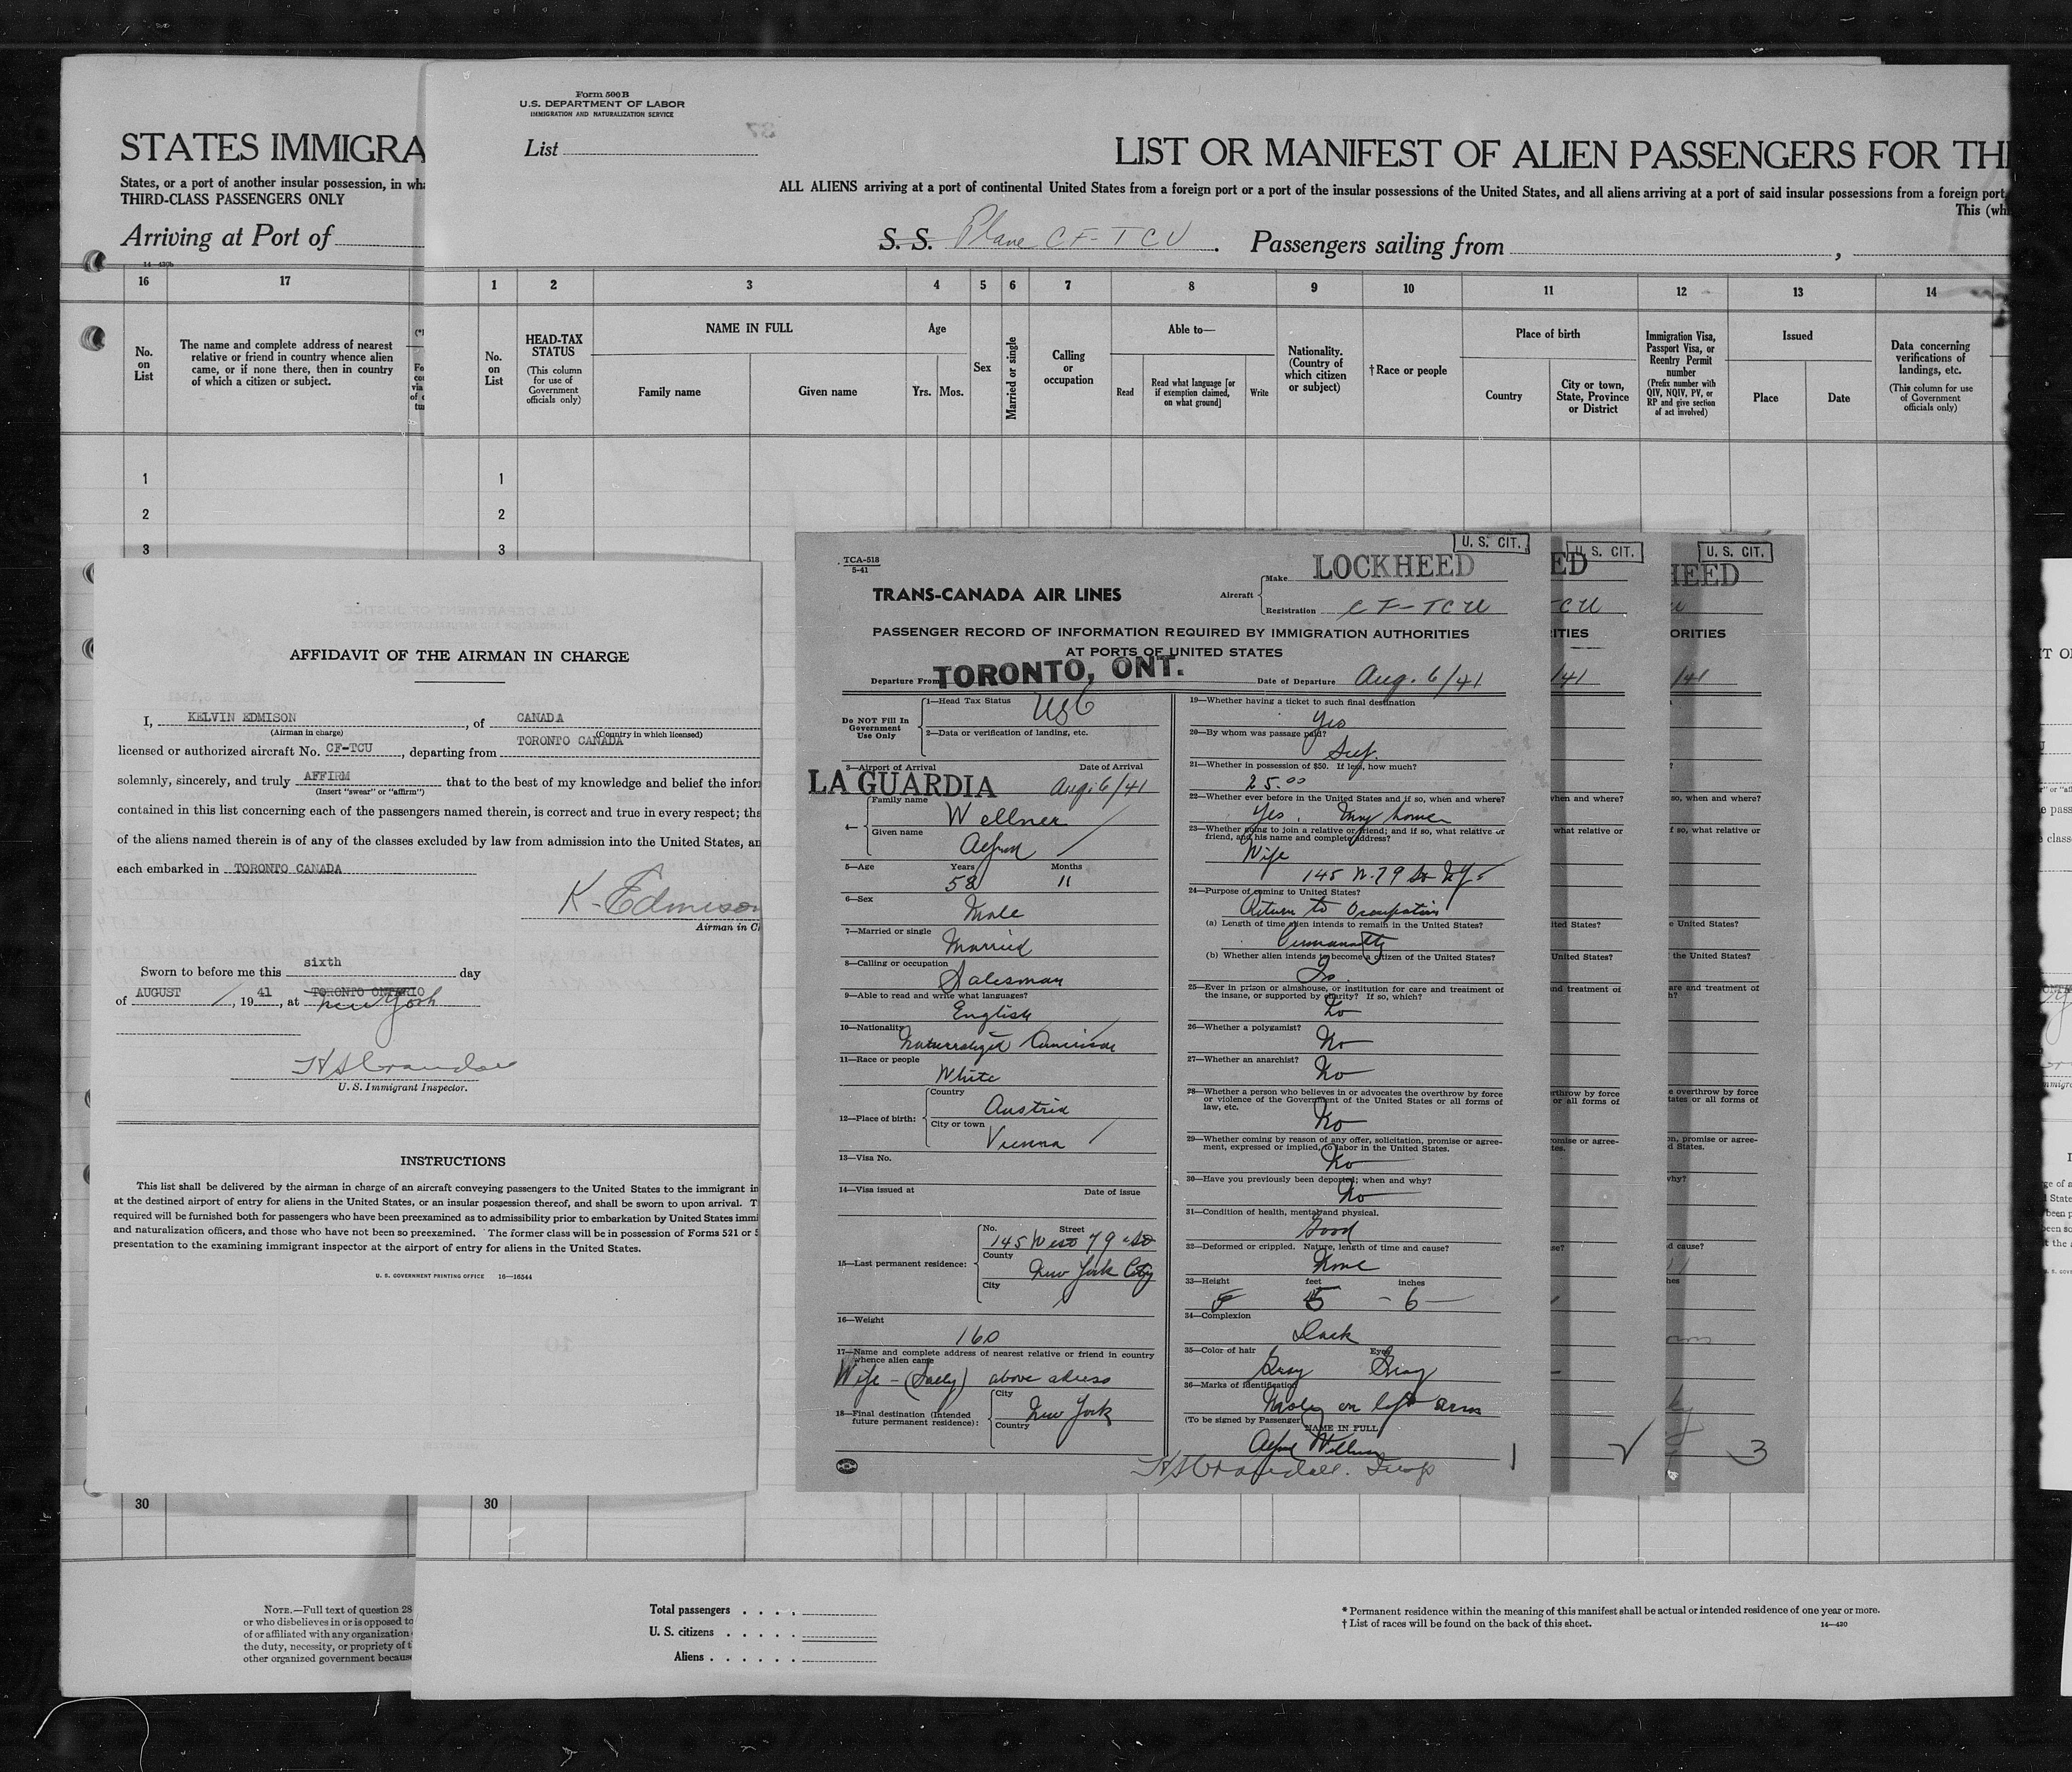 STATES IMMIGRA
States, or a port of another insular possession, in wha
THIRD-CLASS PASSENGERS ONLY
Arriving at Port of
16
17
No. on List
The name and complete address of nearest
relative or friend in country whence alien
came, or if none there, then in country
of which a citizen or subject.
1
2
3
30
NOTE.—Full text of question 28
or who disbelieves in or is opposed to
of or affiliated with any organization
the duty, necessity, or propriety of t
other organized government because
Form 500 B
U.S. DEPARTMENT OF LABOR
IMMIGRATION AND NATURALIZATION SERVICE
List
LIST OR MANIFEST OF ALIEN PASSENGERS FOR TH
ALL ALIENS arriving at a port of continental United States from a foreign port or a port of the insular possessions of the United States, and all aliens arriving at a port of said insular possessions from a foreign port,
This (wh
S. S. Plane CF-TCU. Passengers sailing from ,
1 2 3 4 5 6 7 8 9 10 11 12 13 14
No. on List
HEAD-TAX STATUS
(This column for use of Government officials only)
NAME IN FULL
Family name
Given name
Age
Yrs. Mos.
Sex
Married or single
Calling or occupation
Able to—
Read
Read what language [or if exemption claimed, on what ground]
Write
Nationality. (Country of which citizen or subject)
† Race or people
Place of birth
Country
City or town, State, Province or District
Immigration Visa, Passport Visa, or Reentry Permit number
(Prefix number with QIV, NQIV, PV, or RP and give section of act involved)
Issued
Place
Date
Data concerning verifications of landings, etc.
(This column for use of Government officials only)
1
2
3
30
Total passengers . . . .
U. S. citizens . . . . .
Aliens . . . . . .
* Permanent residence within the meaning of this manifest shall be actual or intended residence of one year or more.
† List of races will be found on the back of this sheet.
14—420
AFFIDAVIT OF THE AIRMAN IN CHARGE
I, KELVIN EDMISON, of CANADA
(Airman in charge) (Country in which licensed)
licensed or authorized aircraft No. CF-TCU, departing from TORONTO CANADA
solemnly, sincerely, and truly AFFIRM that to the best of my knowledge and belief the infor
(Insert "swear" or "affirm")
contained in this list concerning each of the passengers named therein, is correct and true in every respect; tha
of the aliens named therein is of any of the classes excluded by law from admission into the United States, an
each embarked in TORONTO CANADA
K-Edmison
Airman in C
Sworn to before me this sixth day
of AUGUST, 19 41, at TORONTO ONTARIO
New York
H S Crandall
U. S. Immigrant Inspector.
INSTRUCTIONS
This list shall be delivered by the airman in charge of an aircraft conveying passengers to the United States to the immigrant in
at the destined airport of entry for aliens in the United States, or an insular possession thereof, and shall be sworn to upon arrival. T
required will be furnished both for passengers who have been preexamined as to admissibility prior to embarkation by United States immi
and naturalization officers, and those who have not been so preexamined. The former class will be in possession of Forms 521 or 5
presentation to the examining immigrant inspector at the airport of entry for aliens in the United States.
U. S. GOVERNMENT PRINTING OFFICE 16—16544
U. S. CIT.
TCA-518
5-41
TRANS-CANADA AIR LINES
Aircraft
Make LOCKHEED
Registration CF-TCU
PASSENGER RECORD OF INFORMATION REQUIRED BY IMMIGRATION AUTHORITIES
AT PORTS OF UNITED STATES
Departure From TORONTO, ONT. Date of Departure Aug. 6/41
Do NOT Fill In Government Use Only
1—Head Tax Status USC
2—Data or verification of landing, etc.
3—Airport of Arrival Date of Arrival
LA GUARDIA Aug. 6/41
4— Family name Wellner
Given name Alfred
5—Age Years 58 Months 11
6—Sex Male
7—Married or single Married
8—Calling or occupation Salesman
9—Able to read and write what languages? English
10—Nationality Naturalized American
11—Race or people White
12—Place of birth: Country Austria
City or town Vienna
13—Visa No.
14—Visa issued at Date of issue
15—Last permanent residence: No. Street 145 West 79 St
County New York City
City
16—Weight 160
17—Name and complete address of nearest relative or friend in country
whence alien came
Wife - (Sally) above adress
18—Final destination (Intended future permanent residence): City New York
Country
19—Whether having a ticket to such final destination
Yes
20—By whom was passage paid?
Self.
21—Whether in possession of $50. If less, how much?
25.00
22—Whether ever before in the United States and if so, when and where?
Yes. My home
23—Whether going to join a relative or friend; and if so, what relative or
friend, and his name and complete address?
Wife
145 W. 79 St N.Y.
24—Purpose of coming to United States?
Return to Occupation
(a) Length of time alien intends to remain in the United States?
Permanently
(b) Whether alien intends to become a citizen of the United States?
25—Ever in prison or almshouse, or institution for care and treatment of
the insane, or supported by charity? If so, which?
No
26—Whether a polygamist?
No
27—Whether an anarchist?
No
28—Whether a person who believes in or advocates the overthrow by force
or violence of the Government of the United States or all forms of
law, etc.
No
29—Whether coming by reason of any offer, solicitation, promise or agree-
ment, expressed or implied, to labor in the United States.
No
30—Have you previously been deported; when and why?
No
31—Condition of health, mental and physical.
Good
32—Deformed or crippled. Nature, length of time and cause?
None
33—Height feet inches
5 - 6 -
34—Complexion
Dark
35—Color of hair Eyes
Gray Gray
36—Marks of identification
Moles on left arm
(To be signed by Passenger) NAME IN FULL
Alfred Wellner
H S Crandall. Insp
1
U. S. CIT.
ED
-TCU
ITIES
/41
U. S. CIT.
HEED
ORITIES
/41
3